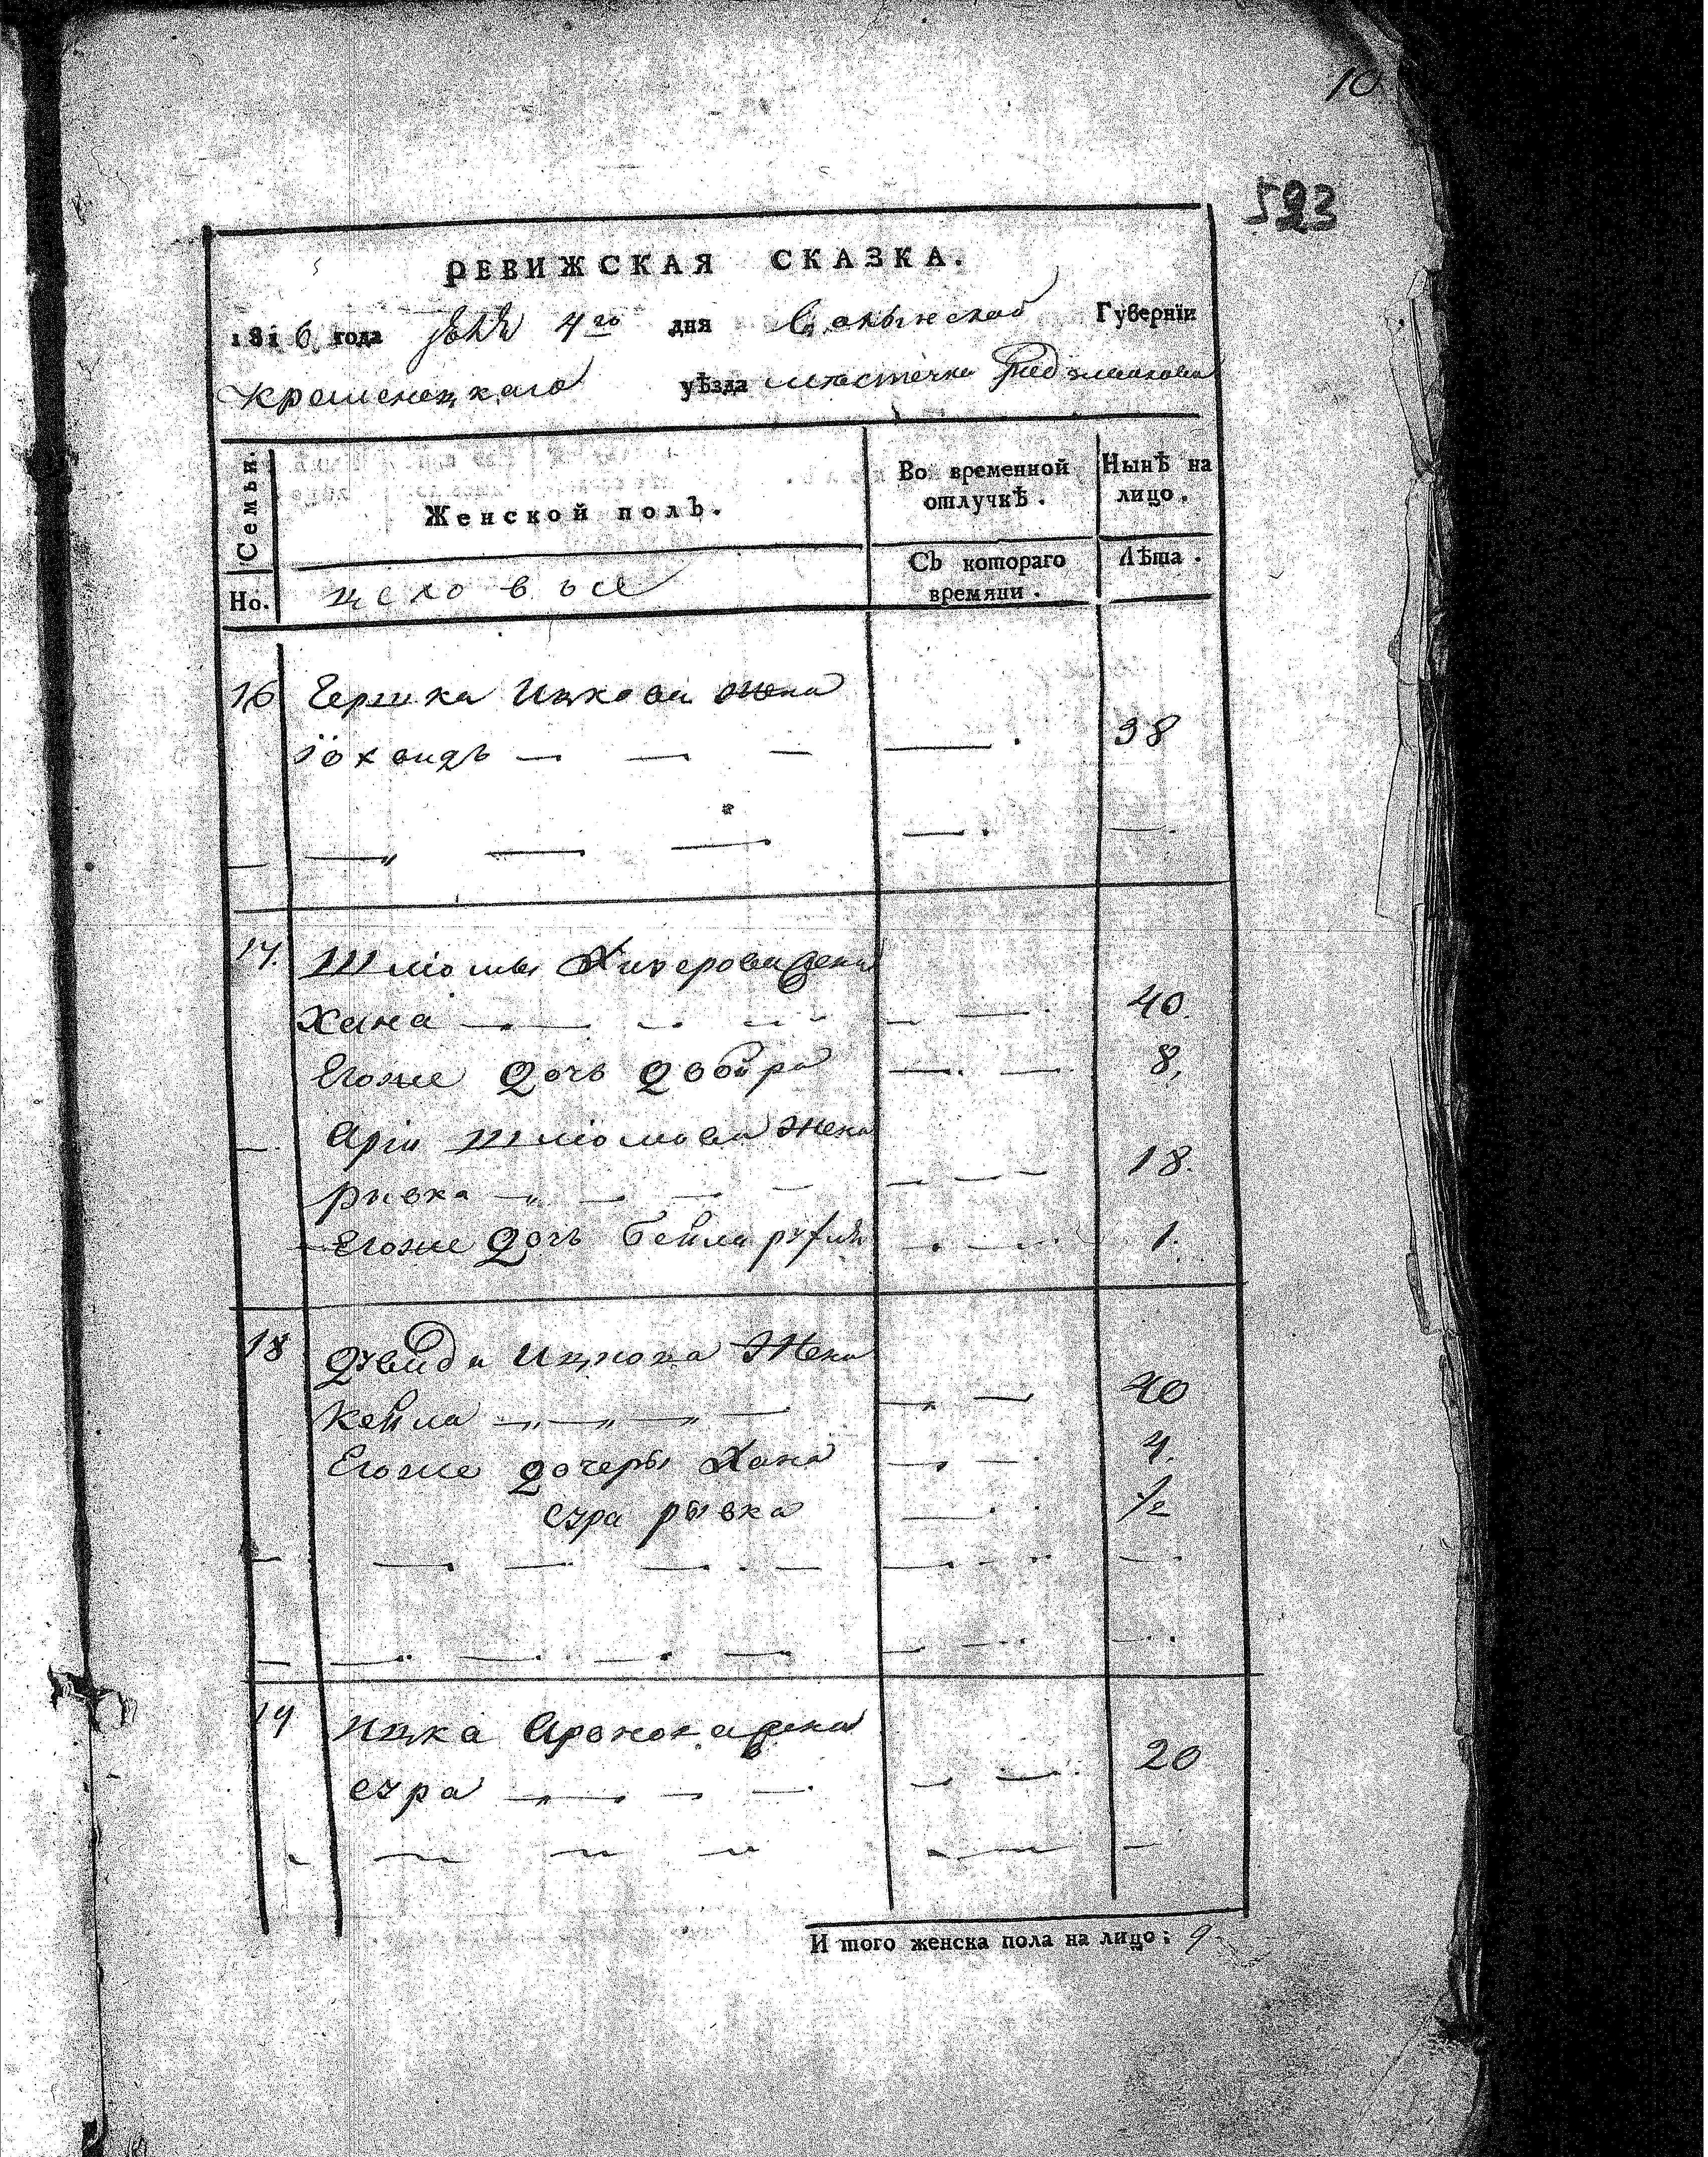 10
523
РЕВИЖСКАЯ СКАЗКА.
1816 года 4го дня Волынской Губернїи
Кременецкаго уѣзда местечка Радзивилова
Семьи.
Женской полъ.
Во временной отлучкѣ.
Нынѣ на лицо.
Но.
Съ котораго времяни.
Лѣта.
16 Гершка Ицкова жена
Іохвидъ — — — — 38
17. Шліомы жена
Хана — — — — 40.
Егоже Дочь Двойра — — 8,
Арія Шліомова жена
Рывка — — — — 18.
Егоже Дочь Бейла — — 1.
18 Давида Ицкова Жена
Кейла — — — — 40
Егоже дочеры Хана — — 4.
Сура Рывка — 1/2
19 Ицка Аронова жена
Сура — — — — 20
И того женска пола на лицо: 9